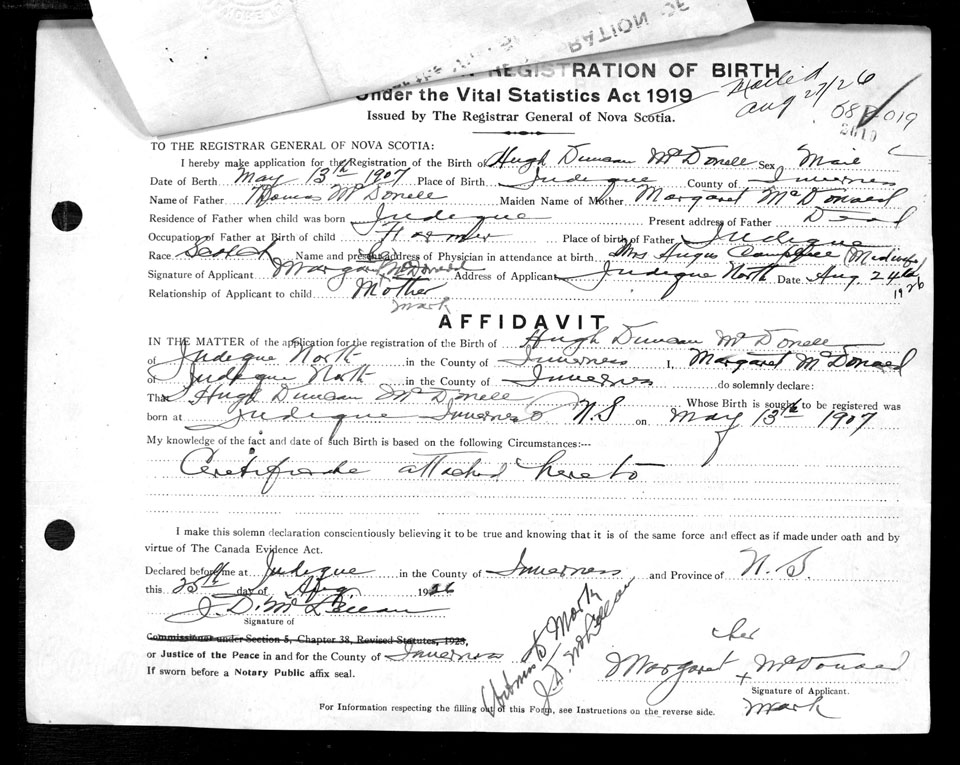 REGISTRATION OF BIRTH
Under the Vital Statistics Act 1919
Issued by The Registrar General of Nova Scotia.
Mailed
Aug 27/26
2619
TO THE REGISTRAR GENERAL OF NOVA SCOTIA:
I hereby make application for the Registration of the Birth of Hugh Duncan McDonell Sex Male
Date of Birth May 13th 1907 Place of Birth Judique County of Inverness
Name of Father Thomas McDonell Maiden Name of Mother Margaret McDonald
Residence of Father when child was born Judique Present address of Father Dead
Occupation of Father at Birth of child Farmer Place of birth of Father Judique
Race Scotch Name and present address of Physician in attendance at birth Mrs Angus (Midwife)
Signature of Applicant Margaret McDonald Address of Applicant Judique North Date Aug 24th 1926
Relationship of Applicant to child Mother
mark
AFFIDAVIT
IN THE MATTER of the application for the registration of the Birth of Hugh Duncan McDonell
of Judique North in the County of Inverness I, Margaret McDonald
of Judique North in the County of Inverness do solemnly declare:
That Hugh Duncan McDonell Whose Birth is sought to be registered was
born at Judique Inverness Co N.S on May 13th 1907
My knowledge of the fact and date of such Birth is based on the following Circumstances:---
Certificate attached hereto
I make this solemn declaration conscientiously believing it to be true and knowing that it is of the same force and effect as if made under oath and by
virtue of The Canada Evidence Act.
Declared before me at Judique in the County of Inverness and Province of N.S.
this 25th day of Aug 1926
J. D. McLellan
Signature of
Commissioner under Section 5, Chapter 38, Revised Statutes, 1923,
or Justice of the Peace in and for the County of Inverness
If sworn before a Notary Public affix seal.
Witness to Mark
J. D. McLellan
her
Margaret + McDonald
Signature of Applicant.
mark
For Information respecting the filling out of this Form, see Instructions on the reverse side.